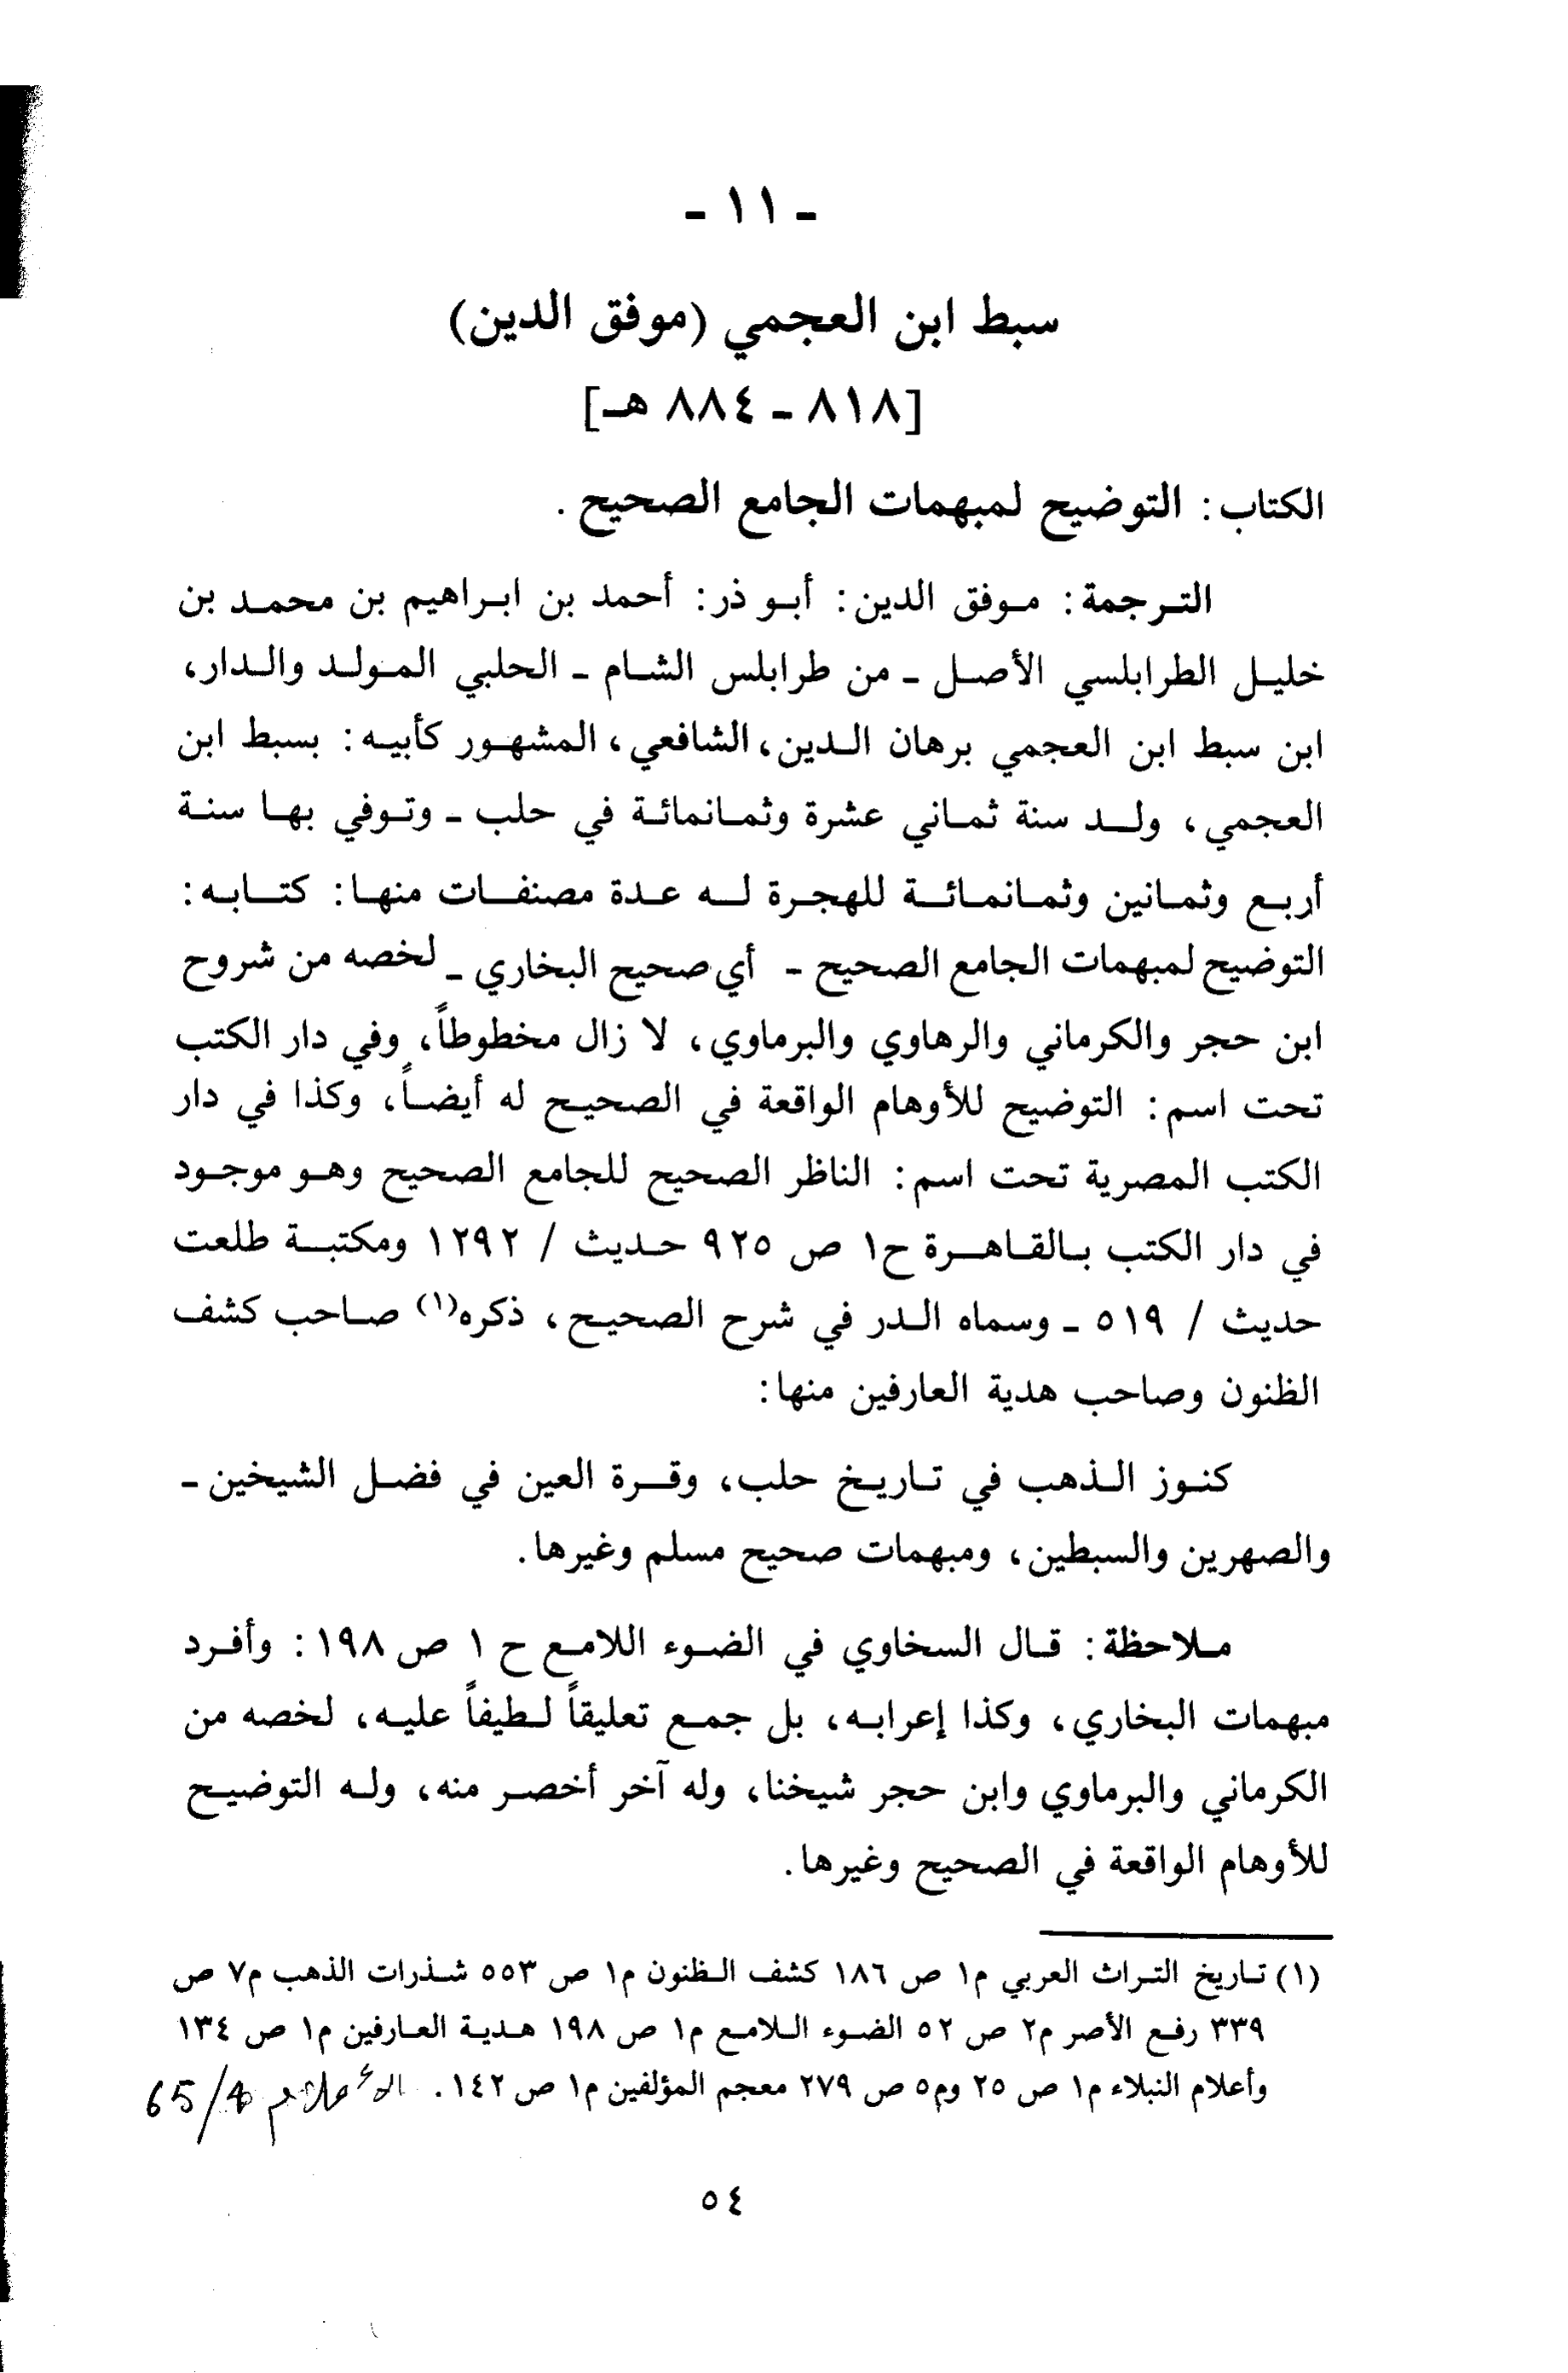 - ١١ -
سبط ابن العجمي (موفق الدين)
[٨١٨ - ٨٨٤ هـ]
الكتاب : التوضيح لمبهمات الجامع الصحيح .
الترجمة : موفق الدين : أبو ذر : أحمد بن ابراهيم بن محمد بن
خليل الطرابلسي الأصل - من طرابلس الشام - الحلبي المولد والدار،
ابن سبط ابن العجمي برهان الدين، الشافعي، المشهور كأبيه : بسبط ابن
العجمي، ولد سنة ثماني عشرة وثمانمائة في حلب - وتوفي بها سنة
أربع وثمانين وثمانمائة للهجرة له عدة مصنفات منها : كتابه :
التوضيح لمبهمات الجامع الصحيح - أي صحيح البخاري - لخصه من شروح
ابن حجر والكرماني والرهاوي والبرماوي، لا زال مخطوطاً، وفي دار الكتب
تحت اسم : التوضيح للأوهام الواقعة في الصحيح له أيضاً، وكذا في دار
الكتب المصرية تحت اسم : الناظر الصحيح للجامع الصحيح وهو موجود
في دار الكتب بالقاهرة ح١ ص ٩٢٥ حديث / ١٢٩٢ ومكتبة طلعت
حديث / ٥١٩ - وسماه الدر في شرح الصحيح، ذكره(١) صاحب كشف
الظنون وصاحب هدية العارفين منها :
كنوز الذهب في تاريخ حلب، وقرة العين في فضل الشيخين -
والصهرين والسبطين، ومبهمات صحيح مسلم وغيرها.
ملاحظة : قال السخاوي في الضوء اللامع ح ١ ص ١٩٨ : وأفرد
مبهمات البخاري، وكذا إعرابه، بل جمع تعليقاً لطيفاً عليه، لخصه من
الكرماني والبرماوي وابن حجر شيخنا، وله آخر أخصر منه، وله التوضيح
للأوهام الواقعة في الصحيح وغيرها.
(١) تاريخ التراث العربي م١ ص ١٨٦ كشف الظنون م١ ص ٥٥٣ شذرات الذهب م٧ ص
٣٣٩ رفع الأصر م٢ ص ٥٢ الضوء اللامع م١ ص ١٩٨ هدية العارفين م١ ص ١٣٤
وأعلام النبلاء م١ ص ٢٥ وم٥ ص ٢٧٩ معجم المؤلفين م١ ص ١٤٢ . الأعلام 65/
٥٤